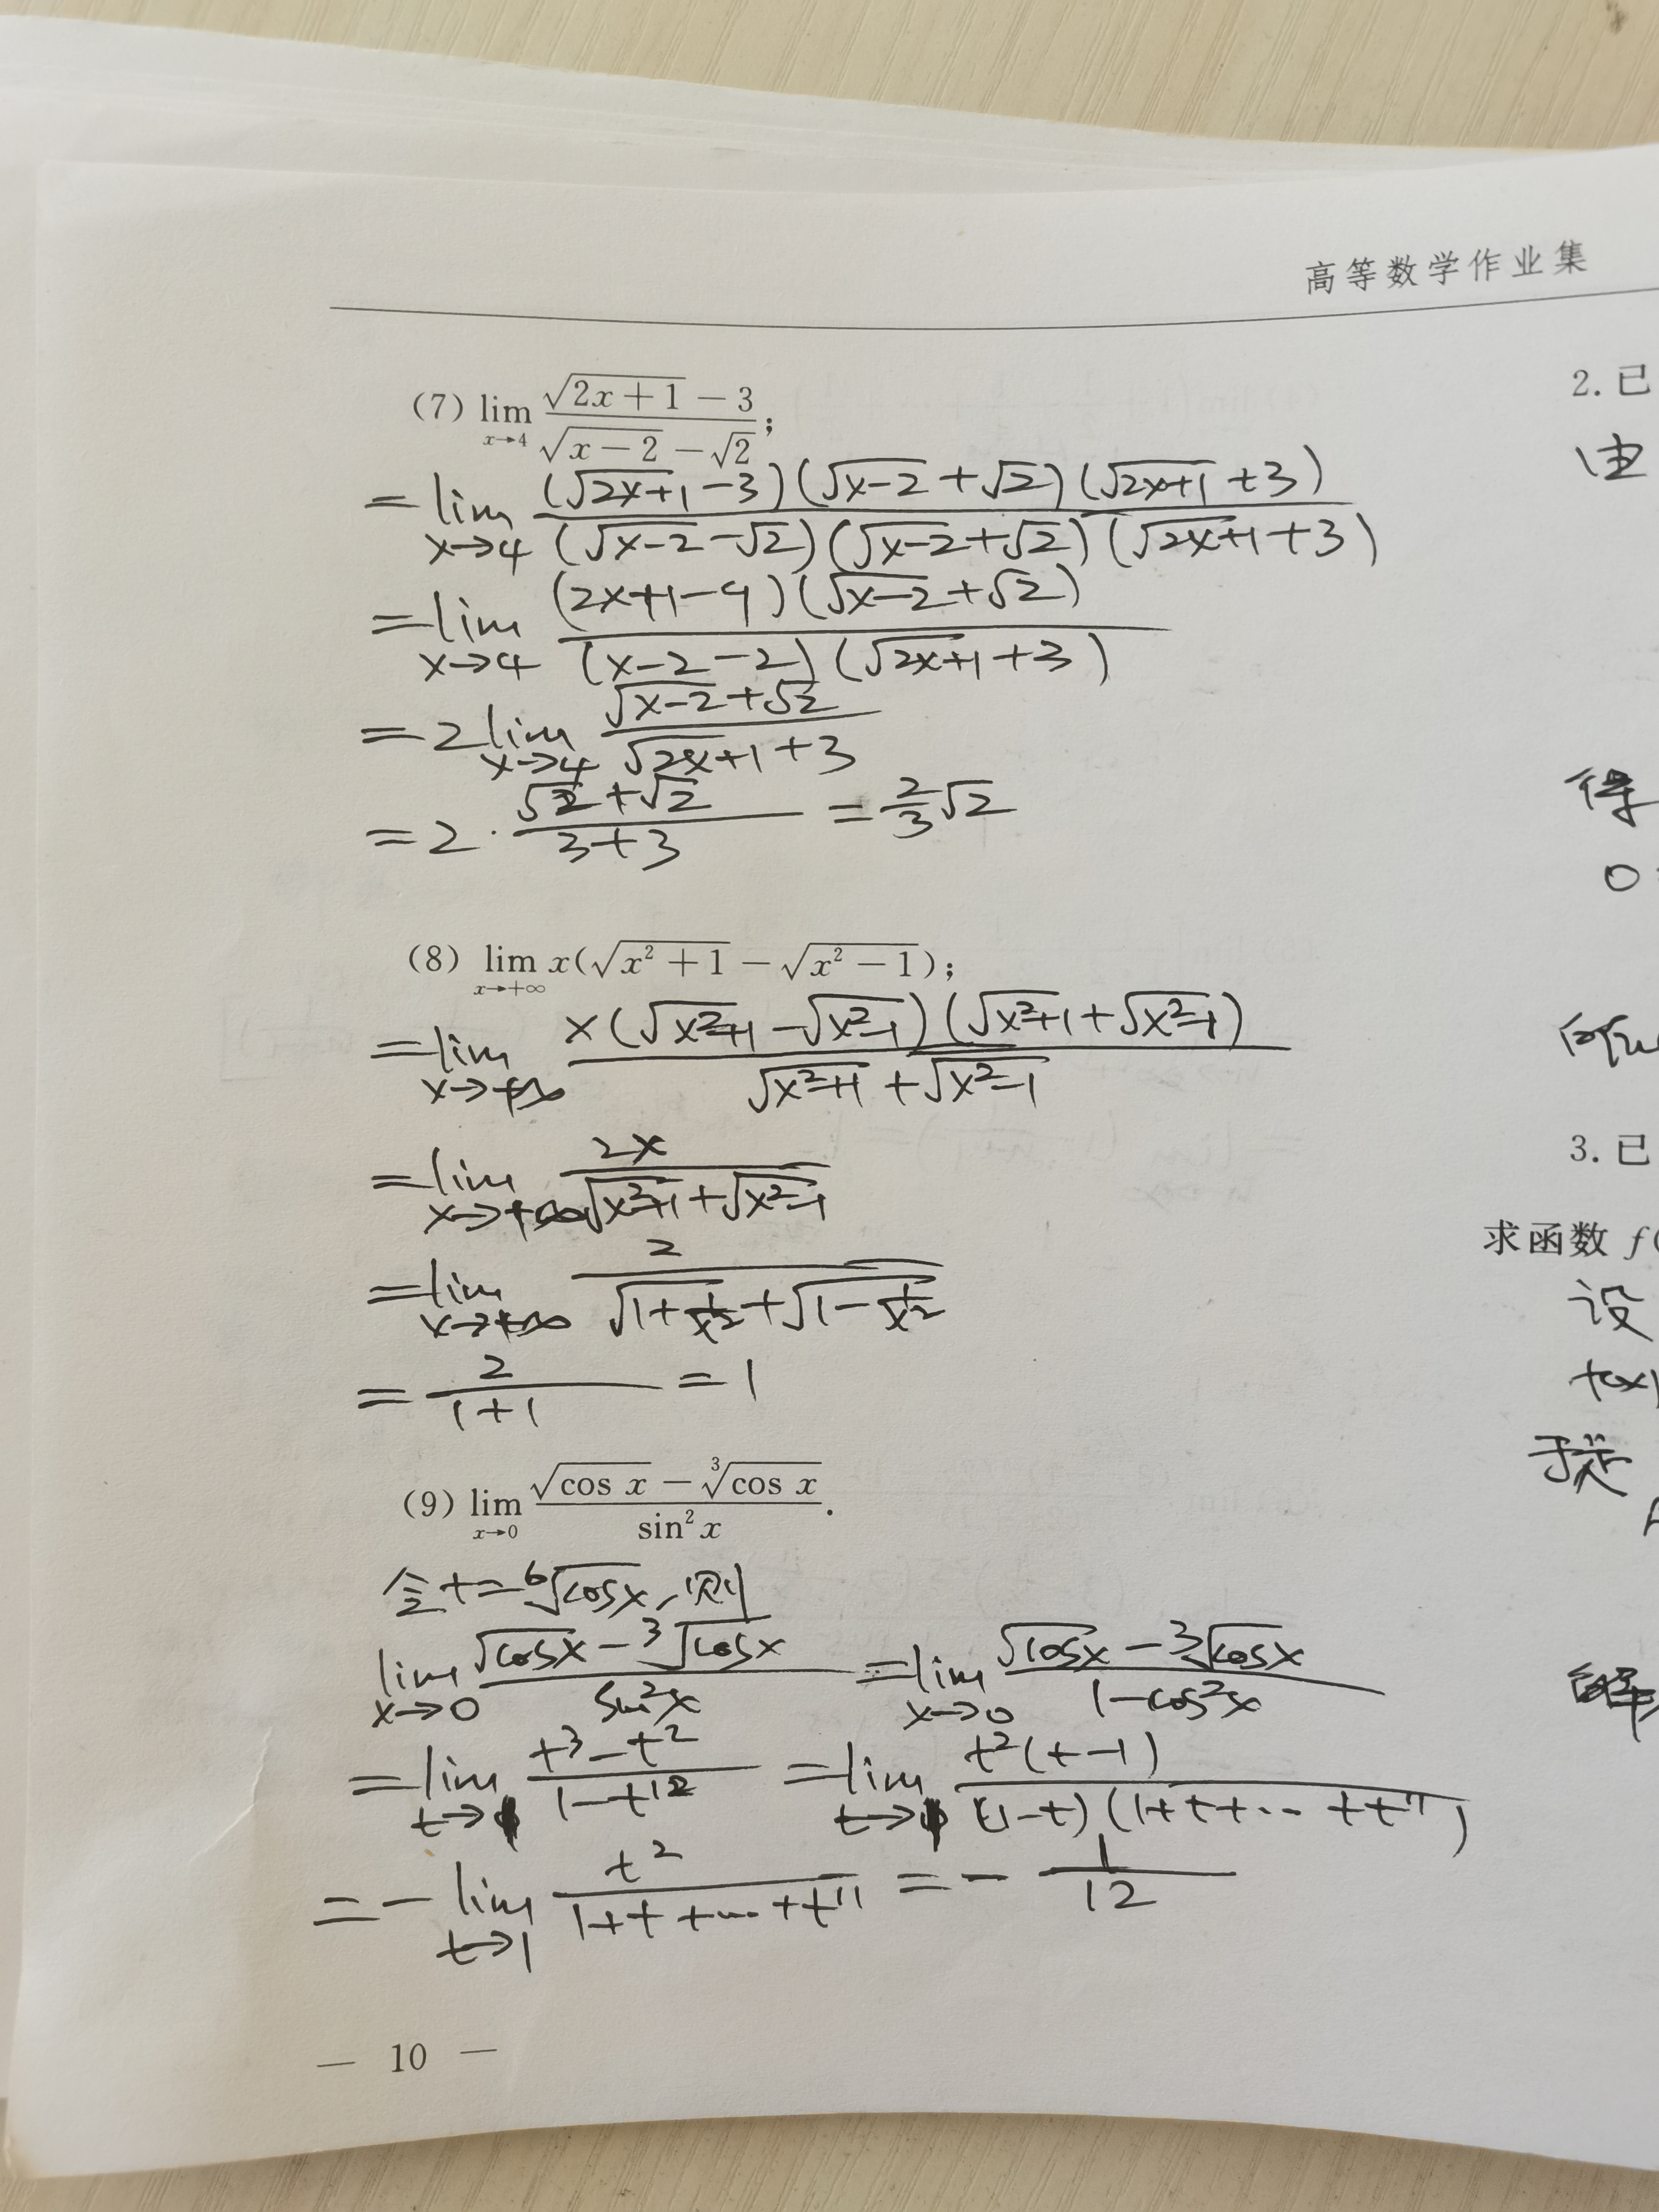 高等数学作业集
(7) lim_{x→4} (√(2x+1) − 3)/(√(x−2) − √2);
= lim_{x→4} (√(2x+1) −3)(√(x−2) + √2)(√(2x+1) +3) / (√(x−2) −√2)(√(x−2) +√2)(√(2x+1) +3)
= lim_{x→4} (2x+1−9)(√(x−2) +√2) / (x−2−2)(√(2x+1) +3)
= 2 lim_{x→4} (√(x−2) +√2)/(√(2x+1) +3)
= 2 · (√2 +√2)/(3+3) = 2/3 √2
(8) lim_{x→+∞} x(√(x² + 1) − √(x² − 1));
= lim_{x→+∞} x(√(x²+1) −√(x²−1))(√(x²+1) +√(x²−1)) / (√(x²+1) +√(x²−1))
= lim_{x→+∞} 2x/(√(x²+1) +√(x²−1))
= lim_{x→+∞} 2/(√(1+1/x²) +√(1−1/x²))
= 2/(1+1) = 1
(9) lim_{x→0} (√(cos x) − ∛(cos x))/sin² x.
令t=⁶√(cosx),则
lim_{x→0} (√(cosx) −³√(cosx))/sin²x = lim_{x→0} (√(cosx) −³√(cosx))/(1−cos²x)
= lim_{t→1} (t³−t²)/(1−t¹²) = lim_{t→1} t²(t−1)/(1−t)(1+t+… +t¹¹)
= − lim_{t→1} t²/(1+t+…+t¹¹) = − 1/12
— 10 —
2. 已
由
得
0
所以
3. 已
求函数 f(
设
f(x)
于是
解